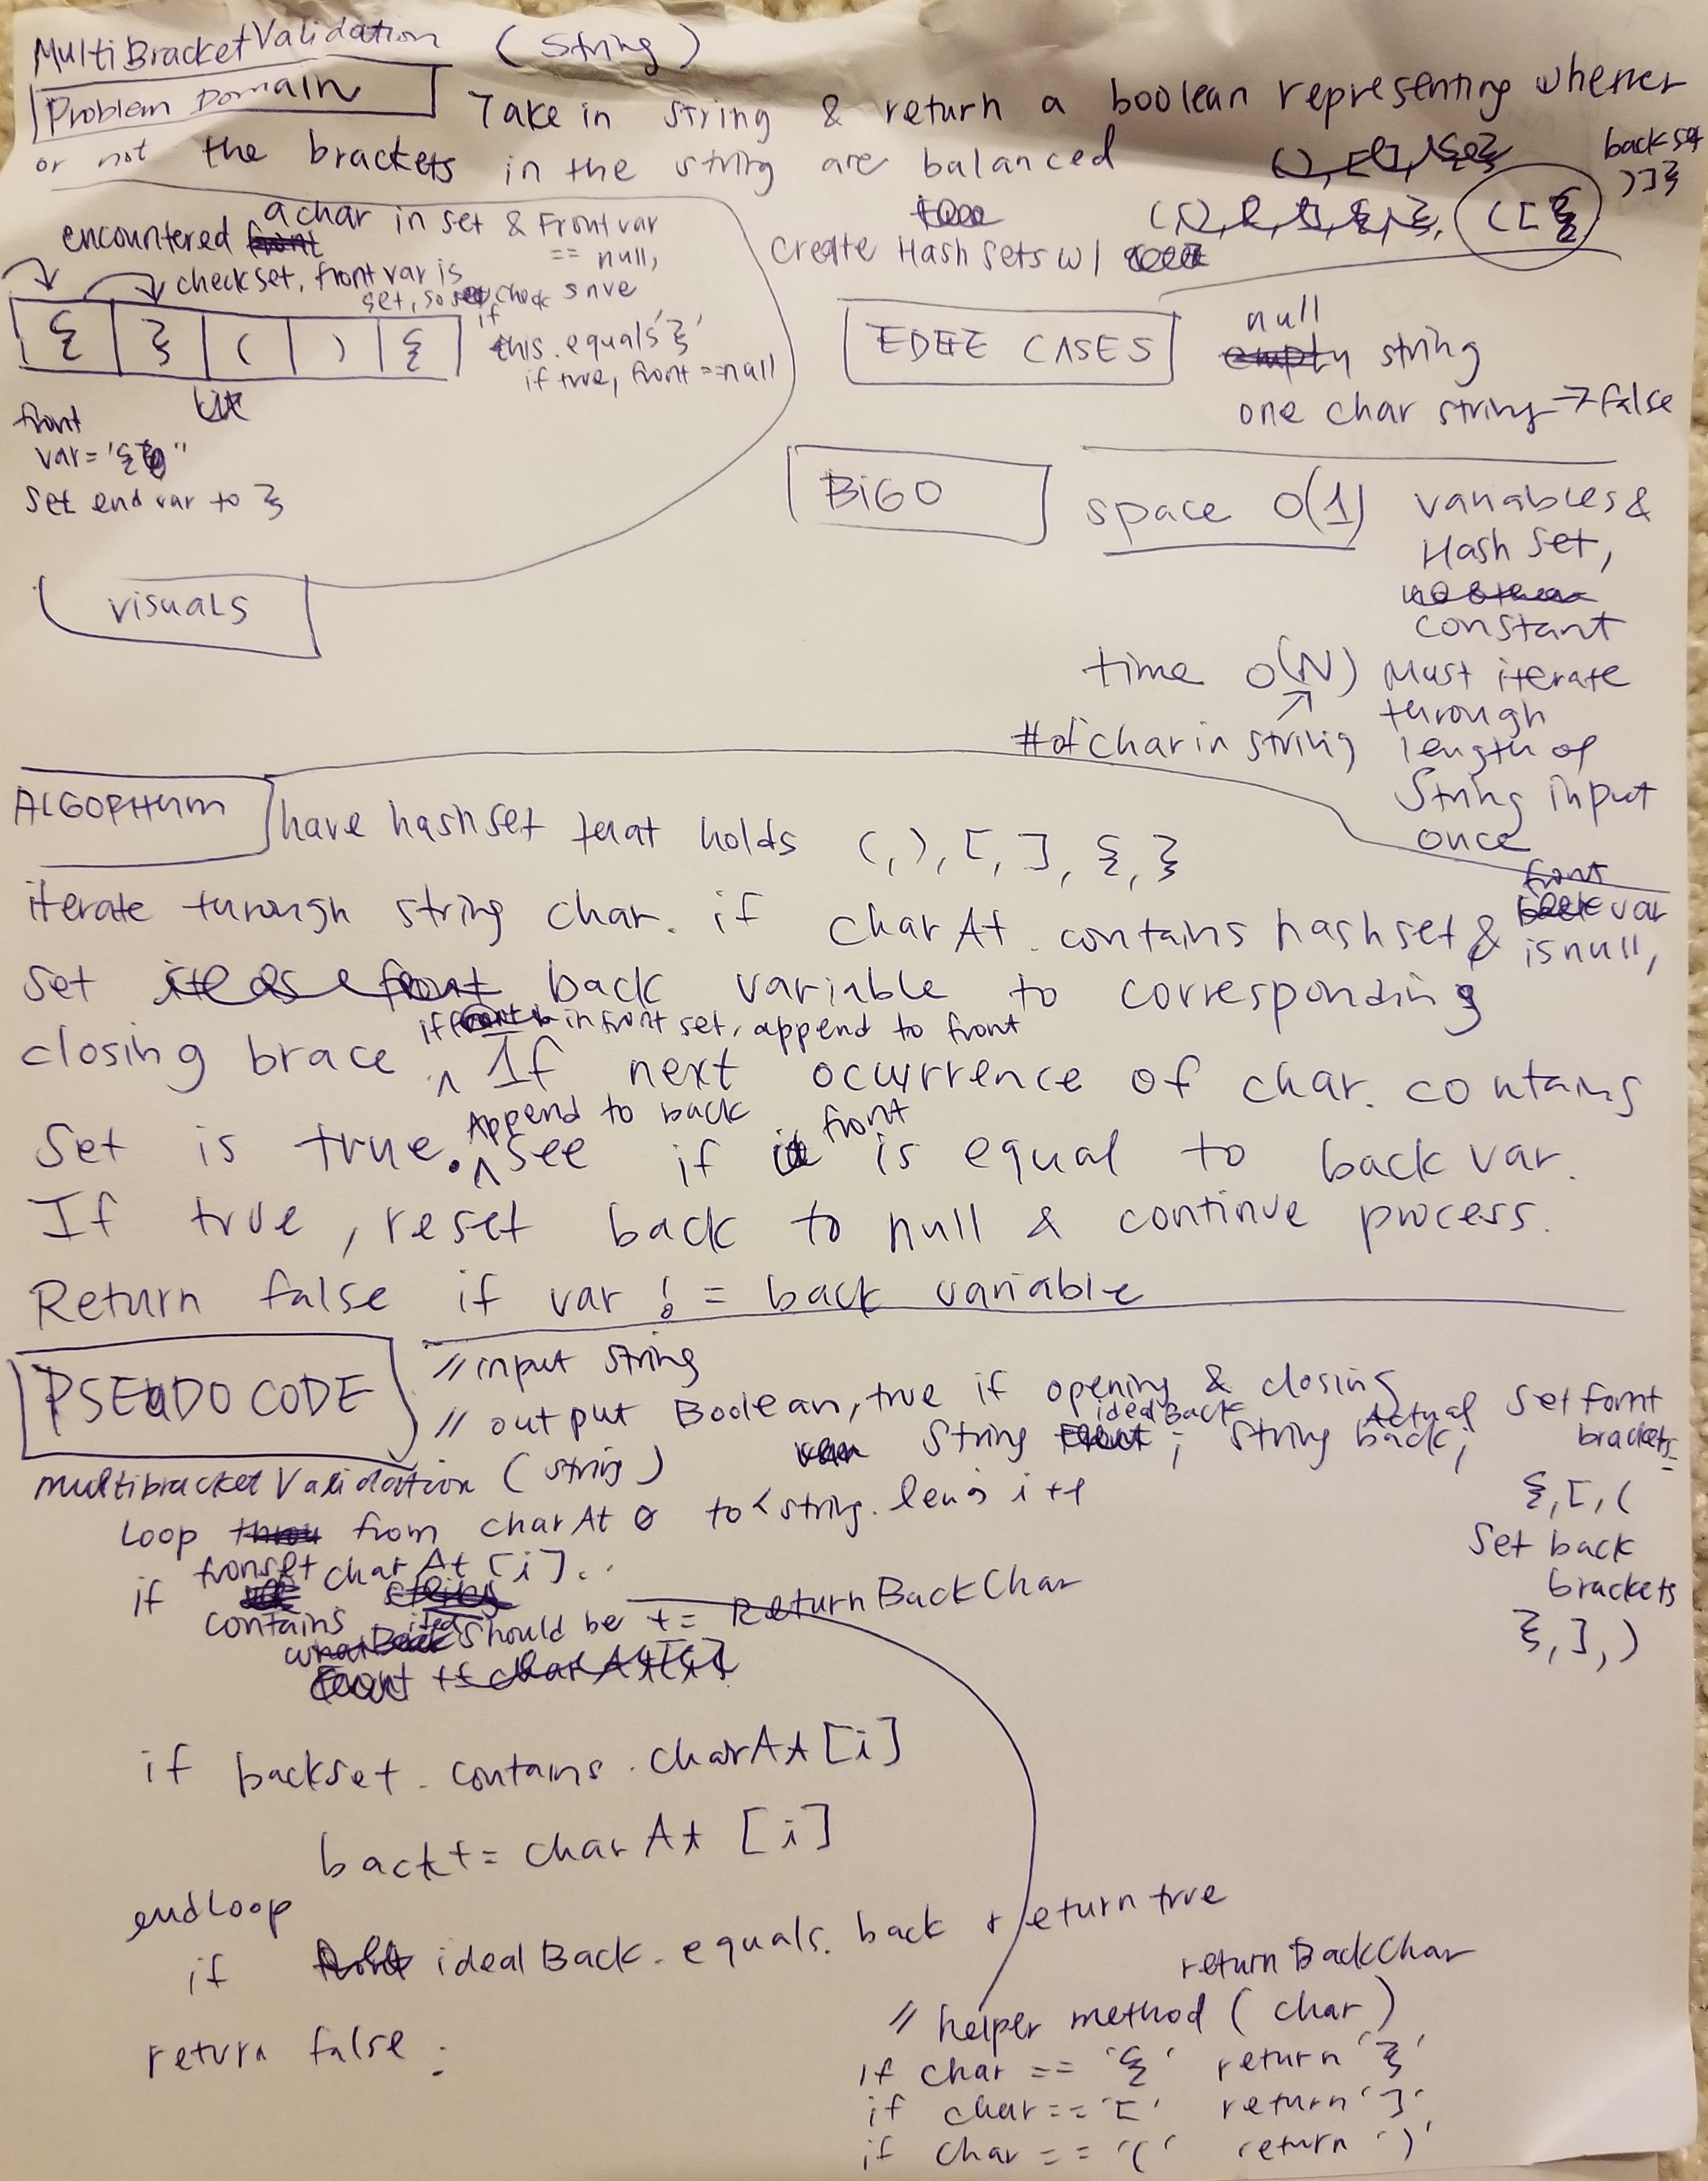 MultiBracketValidation (String)
Problem Domain
Take in string & return a boolean representing whether
or not the brackets in the string are balanced
back set
)]}
([{
create Hash Sets w/
encountered a char in set & Front var
== null,
check set, front var is
set, so check save
if
this.equals '}'
if true, front == null
{ } ( ) {
front
var = '{ "
set end var to }
VISUALS
EDGE CASES
null
string
one char string → false
BIGO
space O(1) variables &
Hash Set,
constant
time O(N) Must iterate
through
#of char in string length of
String input
once
ALGORITHM
have hashset that holds (, ), [, ], {, }
iterate through string char. if charAt.contains hashset & front var
is null,
set back variable to corresponding
closing brace if in front set, append to front
^ If next ocurrence of char. contains
Set is true. ^ Append to back see if front is equal to back var.
If true, reset back to null & continue process.
Return false if var != back variable
PSEUDO CODE
// input string
// output Boolean, true if opening & closing
String idealBack; String Actual back;
set fornt
brackets
{, [, (
Set back
brackets
}, ], )
multibracketValidation (string)
Loop from charAt 0 to < string. leng i++
if fronset charAt [i]..
contains
should be += ReturnBackChar
if backset. contains. charAt [i]
back += charAt [i]
endLoop
if idealBack. equals. back return true
return false;
returnBackChar
// helper method (char)
if char == '{' return '}'
if char == '[' return ']'
if char == '(' return ')'